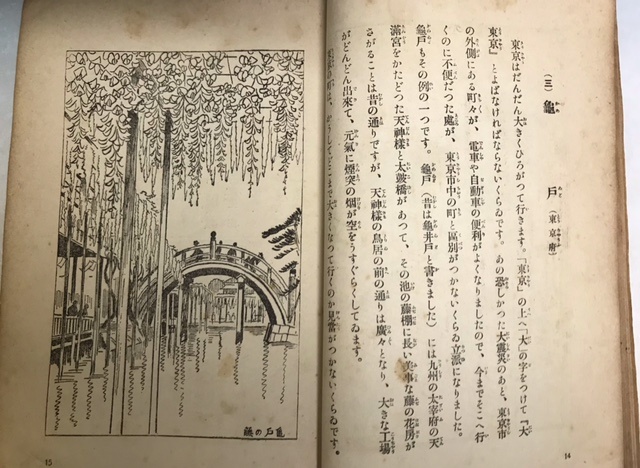 (三) 龜戶(東京府)
東京はだんだん大きくひろがつて行きます。「東京」の上へ「大」の字をつけて『大
東京』とよばなければならないくらゐです。あの恐しかつた大震災のあと、東京市
の外側にある町々が、電車や自動車の便利がよくなりましたので、今までそこへ行
くのに不便だつた處が、東京市中の町と區別がつかないくらゐ立派になりました。
龜戶もその例の一つです。龜戶(昔は龜井戶と書きました)には九州の太宰府の天
滿宮をかたどつた天神樣と太鼓橋があつて、その池の藤棚に長い美事な藤の花房が
さがることは昔の通りですが、天神樣の鳥居の前の通りは廣々となり、大きな工場
がどんどん出來て、元氣に煙突の烟が空をうすぐらくしてゐます。
の町は、かうしてどこまで大きくなつて行くのか見當がつかないくらゐです。
14
龜戶の藤
15